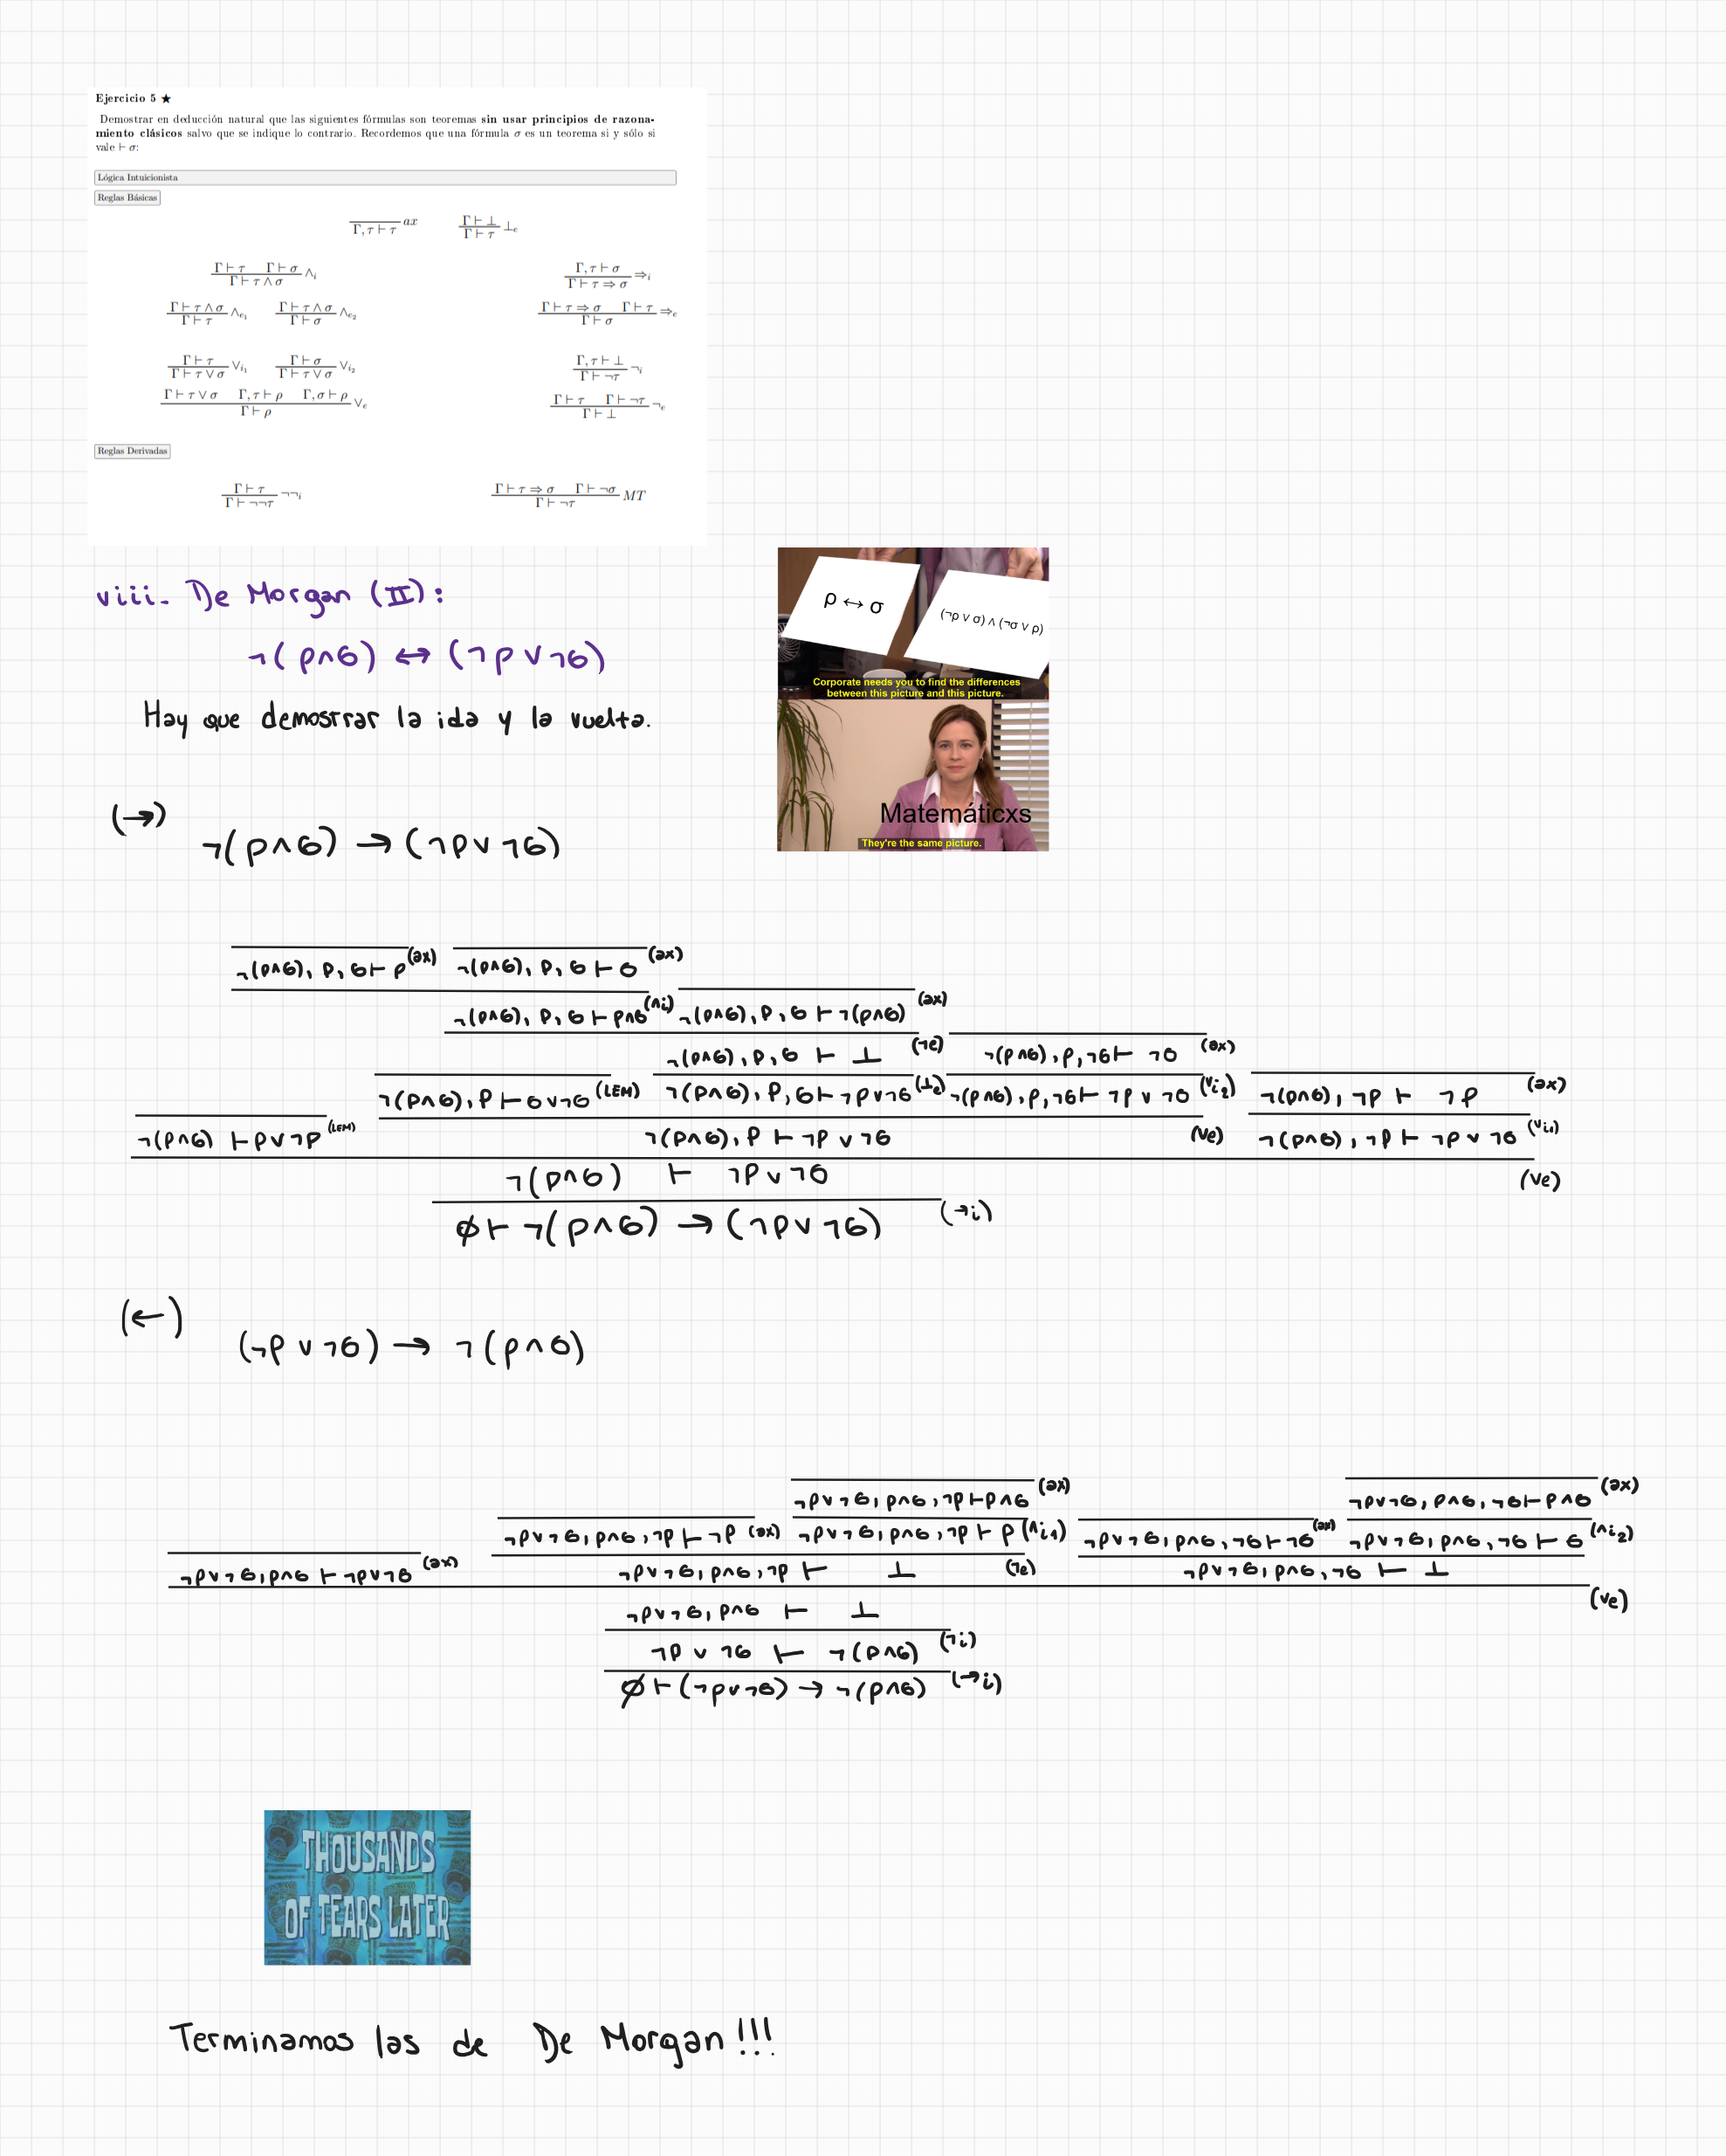 Ejercicio 5 ★
Demostrar en deducción natural que las siguientes fórmulas son teoremas sin usar principios de razona-
miento clásicos salvo que se indique lo contrario. Recordemos que una fórmula σ es un teorema si y sólo si
vale ⊢ σ:
Lógica Intuicionista
Reglas Básicas
Γ, τ ⊢ τ ax
Γ ⊢ ⊥
Γ ⊢ τ ⊥e
Γ ⊢ τ Γ ⊢ σ
Γ ⊢ τ ∧ σ ∧i
Γ, τ ⊢ σ
Γ ⊢ τ ⇒ σ ⇒i
Γ ⊢ τ ∧ σ
Γ ⊢ τ ∧e₁
Γ ⊢ τ ∧ σ
Γ ⊢ σ ∧e₂
Γ ⊢ τ ⇒ σ Γ ⊢ τ
Γ ⊢ σ ⇒e
Γ ⊢ τ
Γ ⊢ τ ∨ σ ∨i₁
Γ ⊢ σ
Γ ⊢ τ ∨ σ ∨i₂
Γ, τ ⊢ ⊥
Γ ⊢ ¬τ ¬i
Γ ⊢ τ ∨ σ Γ, τ ⊢ ρ Γ, σ ⊢ ρ
Γ ⊢ ρ ∨e
Γ ⊢ τ Γ ⊢ ¬τ
Γ ⊢ ⊥ ¬e
Reglas Derivadas
Γ ⊢ τ
Γ ⊢ ¬¬τ ¬¬i
Γ ⊢ τ ⇒ σ Γ ⊢ ¬σ
Γ ⊢ ¬τ MT
viii. De Morgan (II):
¬(ρ∧σ) ↔ (¬ρ∨¬σ)
Hay que demostrar la ida y la vuelta.
ρ ↔ σ
(¬ρ ∨ σ) ∧ (¬σ ∨ ρ)
Corporate needs you to find the differences
between this picture and this picture.
Matemáticxs
They're the same picture.
(→)
¬(ρ∧σ) → (¬ρ∨¬σ)
¬(ρ∧σ), ρ, σ ⊢ ρ (ax) ¬(ρ∧σ), ρ, σ ⊢ σ (ax)
¬(ρ∧σ), ρ, σ ⊢ ρ∧σ (∧i) ¬(ρ∧σ), ρ, σ ⊢ ¬(ρ∧σ) (ax)
¬(ρ∧σ), ρ, σ ⊢ ⊥ (¬e) ¬(ρ∧σ), ρ, ¬σ ⊢ ¬σ (ax)
¬(ρ∧σ), ρ ⊢ σ∨¬σ (LEM) ¬(ρ∧σ), ρ, σ ⊢ ¬ρ∨¬σ (⊥e) ¬(ρ∧σ), ρ, ¬σ ⊢ ¬ρ ∨ ¬σ (∨i₂) ¬(ρ∧σ), ¬ρ ⊢ ¬ρ (ax)
¬(ρ∧σ) ⊢ ρ∨¬ρ (LEM) ¬(ρ∧σ), ρ ⊢ ¬ρ ∨ ¬σ (∨e) ¬(ρ∧σ), ¬ρ ⊢ ¬ρ ∨ ¬σ (∨i₁)
¬(ρ∧σ) ⊢ ¬ρ∨¬σ (∨e)
∅ ⊢ ¬(ρ∧σ) → (¬ρ∨¬σ) (→i)
(←)
(¬ρ ∨ ¬σ) → ¬(ρ∧σ)
¬ρ∨¬σ, ρ∧σ, ¬ρ ⊢ ρ∧σ (ax) ¬ρ∨¬σ, ρ∧σ, ¬σ ⊢ ρ∧σ (ax)
¬ρ∨¬σ, ρ∧σ, ¬ρ ⊢ ¬ρ (ax) ¬ρ∨¬σ, ρ∧σ, ¬ρ ⊢ ρ (∧i₁) ¬ρ∨¬σ, ρ∧σ, ¬σ ⊢ ¬σ (ax) ¬ρ∨¬σ, ρ∧σ, ¬σ ⊢ σ (∧i₂)
¬ρ∨¬σ, ρ∧σ ⊢ ¬ρ∨¬σ (ax) ¬ρ∨¬σ, ρ∧σ, ¬ρ ⊢ ⊥ (¬e) ¬ρ∨¬σ, ρ∧σ, ¬σ ⊢ ⊥
¬ρ∨¬σ, ρ∧σ ⊢ ⊥ (∨e)
¬ρ ∨ ¬σ ⊢ ¬(ρ∧σ) (¬i)
∅ ⊢ (¬ρ∨¬σ) → ¬(ρ∧σ) (→i)
THOUSANDS
OF TEARS LATER
Terminamos las de De Morgan!!!